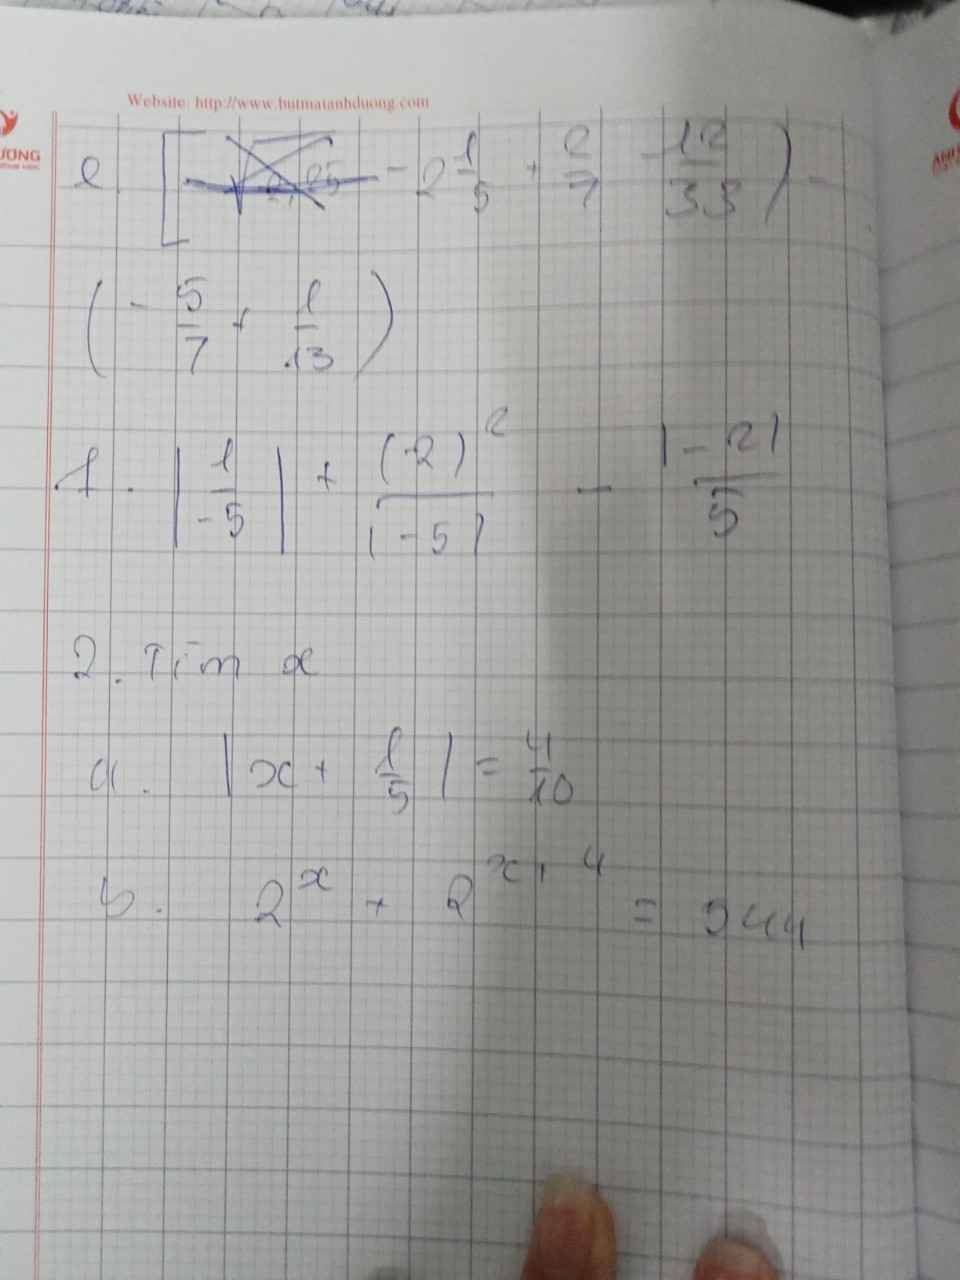 Website: http://www.butmatanhduong.com
ƯƠNG
e. [ - 2 1/5 + 2/7 - 12/33 ) -
( - 5/7 + 1/13 )
f. | 1/-5 | + (-2)²/|-5| - |-2|/5
2. Tìm x
a. | x + 1/5 | = 4/10
b. 2^x + 2^(x+4) = 544